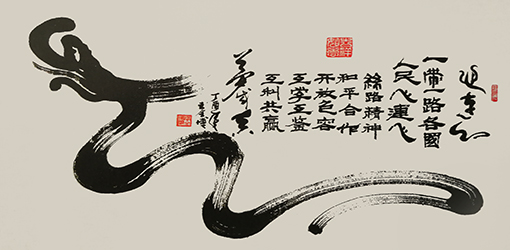 一帶一路各國
人民心連心
絲路精神
和平合作
开放包容
互学互鉴
互利共赢
丁酉